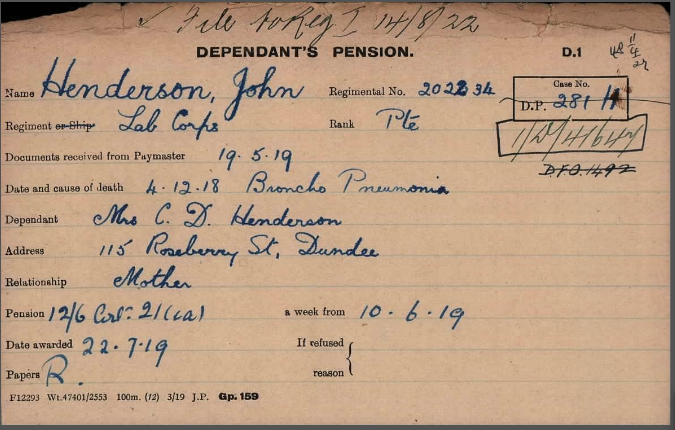 File to Reg I 14/8/22
DEPENDANT'S PENSION. D.1
Name Henderson, John Regimental No. 202234 Case No.
D.P. 281 H
Regiment or Ship Lab Corps Rank Pte 1/D/41647
Documents received from Paymaster 19.5.19 D.F.O. 1492
Date and cause of death 4.12.18 Broncho Pneumonia
Dependant Mrs C. D. Henderson
Address 115 Roseberry St, Dundee
Relationship Mother
Pension 12/6 21(ia) a week from 10.6.19
Date awarded 22.7.19 If refused
Papers R. reason
F12293 Wt.47401/2553 100m. (12) 3/19 J.P. Gp.159